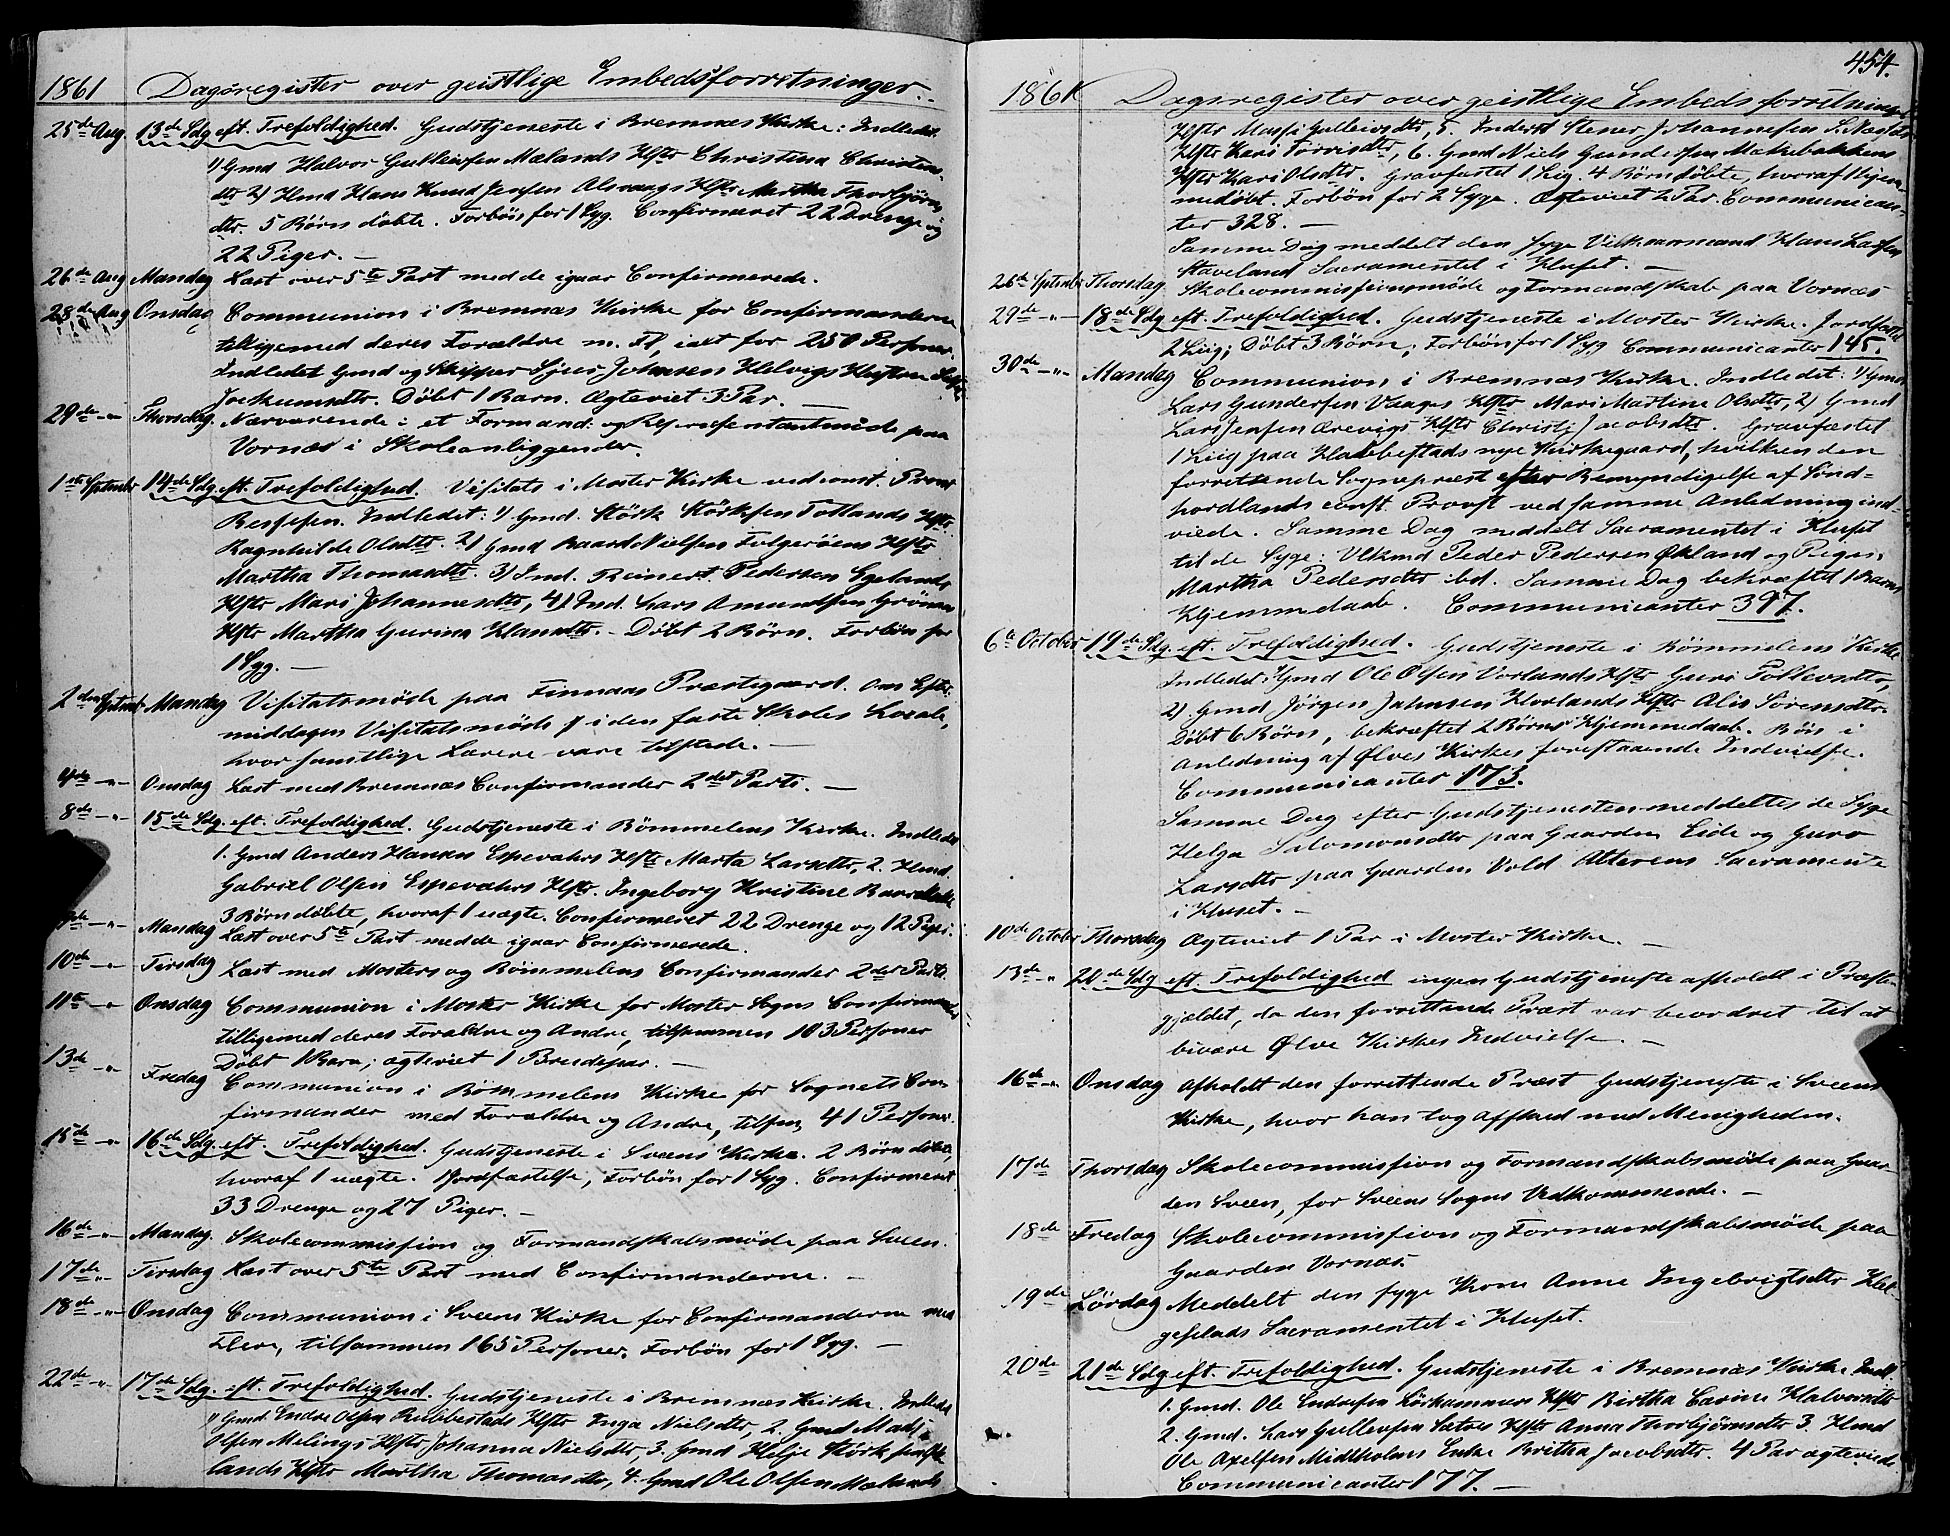 1861 Dagsregister over geistlige Embedsforretninger.
25de Aug. 13de Sdg. eft. Trefoldighed. Gudstjeneste i Bremnæs Kirke: Indledet
1) Gmd Halvor Gulleiksen Mælands Hstr Christina Christens-
dtr 2) Hmd Hans Knud Jensen Alsvaags Hstr Martha Thorbjörns-
dtr. 5 Börn döbte. Forbön for 1 Syg. Confirmeret 22 Drenge og
22 Piger. —
26de Aug Mandag Læst over 5te Part med de igaar Confirmerede.
28de Aug Onsdag Communion i Bremnæs Kirke for Confirmanderne
tilligemed deres Forældre m. Fl, ialt for 250 Personer.
Indledet Gmd og Skipper Sjur Johnsen Helvigs Hustru
Joekumsdtr. Döbt 1 Barn. Ægteviet 3 Par. —
29de -"- Thorsdag. Nærværende i et Formand- og Repræsentantmöde paa
Vornæs i Skoleanliggender.
1ste September 14de Sdg. eft. Trefoldighed. Visitats i Moster Kirke ved const. Provst
Indledet: 1) Gmd. Störk Störksen Totlands Hstr
Ragnhilde Olsdtr. 2) Gmd Baard Nielsen Folgeröens Hstr
Martha Thomasdtr. 3) Ind. Reinert Pedersen Egelands
Hstr Mari Johannesdtr, 4) Ind. Lars Amundsen Grönnæs
Hstr Martha Gurina Hansdtr. — Döbt 2 Börn. Forbön for
1 Syg. —
2den Septemb Mandag Visitatsmöde paa Finnaas Præstegaard. Om Efter-
middagen Visitatsmöde i den faste Skoles Locale,
hvor samtlige Lærere vare tilstede. —
4de -"- Onsdag Læst med Bremnæs Confirmander 2det Parti. —
8de -"- 15de Sdg. eft. Trefoldighed. Gudstjeneste i Bömmelens Kirke. Indledet
1. Gmd Anders Hansen Espevahrs Hstr Marta Larsdtr, 2. Hmd.
Gabriel Olsen Espevahrs Hstr. Ingeborg Kristine
3 Börn döbte, hvoraf 1 uægte. Confirmeret 22 Drenge og 12 Piger.
9de -"- Mandag Læst over 5te Part med de igaar Confirmerede.
10de -"- Tirsdag Læst med Mosters og Bömmelens Confirmander 2det Parti.
11te -"- Onsdag Communion i Moster Kirke for Moster Sogns Confirmander
tilligemed deres Forældre og Andre, tilsammen 103 Personer
Döbt 1 Barn; ægteviet 1 Brudepar. —
13de -"- Fredag Communion i Bömmelens Kirke for Sognets Con-
firmander med Forældre og Andre, tilsm 41 Personer.
15de -"- 16de Sdg. eft. Trefoldighed. Gudstjeneste i Sveens Kirke. 2 Börn döbte,
hvoraf 1 uægte. 1 Jordfæstelse, Forbön for 1 Syg. Confirmeret
33 Drenge og 27 Piger. —
16de -"- Mandag. Skolecommission og Formandskabsmöde paa Sveen.
17de -"- Tirsdag Læst over 5te Part med Confirmanderne. —
18de -"- Onsdag Communion i Sveens Kirke for Confirmanderne med
Flere, tilsammen 165 Personer. Forbön for 1 Syg. —
22de -"- 17de Sdg. eft. Trefoldighed. Gudstjeneste i Bremnæs Kirke. Indledet
1) Gmd Endre Olsen Rubbestads Hstr Inga Nielsdtr, 2. Gmd Mads
Olsen Melings Hstr Johanna Nielsdtr, 3. Gmd Helje Störksen
lands Hstr Martha Thomasdtr, 4. Gmd Ole Olsen Mælands
454.
1861 Dagsregister over geistlige Embedsforretninger
Hstr Massi Gulleivsdtr, 5. Inderst Stener Johannesen S. Næsses
Hstr Kari Torrisdtr, 6. Gmd Niels Gundersen Mækebakkens
Hstr Kari Olsdtr. Gravfæstet 1 Liig. 4 Börn döbte, hvoraf 1 hjem-
medöbt. Forbön for 2 Syge. Ægteviet 2 Par. Communican-
ter 328. —
Samme Dag meddelt den syge Vilkaarmand Hans Larsen
Staveland Sacramentet i Huset. —
26de September Thorsdag Skolecommissionsmöde og Formandskab paa Vornæs
29de -"- 18de Sdg. eft. Trefoldighed. Gudstjeneste i Moster Kirke. Jordfæstet
2 Liig; Döbt 3 Börn; Forbön for 1 Syg Communicanter 145.
30de -"- Mandag Communion i Bremnæs Kirke. Indledet: 1) Gmd
Lars Gundersen Vaages Hstr Mari Martine Olsdtr, 2) Gmd
Lars Jensen Ærevigs Hstr Christi Jacobsdtr. Gravfæstet
1 Liig paa Habbestads nye Kirkegaard, hvilken den
forrettende Sognepræst efter Bemyndigelse af Sönd-
hordlands const. Provst ved samme Anledning ind-
viede. Samme Dag meddelt Sacramentet i Huset
til de Syge: Vlkmd Peder Pedersen Økland og Pigen
Martha Pedersdtr ibd. Samme Dag bekræftet 1 Barns
Hjemmedaab. Communicanter 397.
6te October 19de Sdg. eft. Trefoldighed. Gudstjeneste i Bömmelens Kirke
Indledet: 1) Gmd Ole Olsen Vorlands Hstr Guri Tollevsdtr,
2) Gmd Jörgen Johnsen Hovlands Hstr Alis Sörensdtr.
Döbt 6 Börn, bekræftet 2 Börns Hjemmedaab. Bön i
Anledning af Ølves Kirkes forestaaende Indvielse.
Communicanter 173.
Samme Dag efter Gudstjenesten meddeltes de Syge
Helga Salomonsdtr paa Gaarden Eide og Guro
Larsdtr paa Gaarden Vold Alterens Sacramente
i Huset. —
10de October Thorsdag Ægteviet 1 Par i Moster Kirke. —
13de -"- 20de Sdg eft. Trefoldighed ingen Gudstjeneste afholdt i Præste-
gjældet, da den forrettende Præst var beordret til at
bivære Ølve Kirkes Indvielse. —
16de -"- Onsdag Afholdt den forrettende Præst Gudstjeneste i Sveens
Kirke, hvor han tog Afsked med Menigheden.
17de Thorsdag Skolecommission og Formandskabsmöde paa Gaar-
den Sveen, for Sveens Sogns Vedkommende. —
18de Fredag Skolecommission og Formandskabsmöde paa
Gaarden Vornæs.
19de Lördag Meddelt den syge Kone Anne Ingebrigtsdtr Hel-
geslads Sacramentet i Huset.
20de 21de Sdg. eft. Trefoldighed. Gudstjeneste i Bremnæs Kirke Indl.
1. Gmd. Ole Endresen Lörhammers Hstr Birtha Carine Halvorsdtr
2. Gmd. Lars Gulleiksen Sætres Hstr Anna Thorbjörnsdtr 3. Hmd
Ole Axelsen Midtholms Enke Britha Jacobsdtr. 4 Par ægteviede
Communicanter 177. —